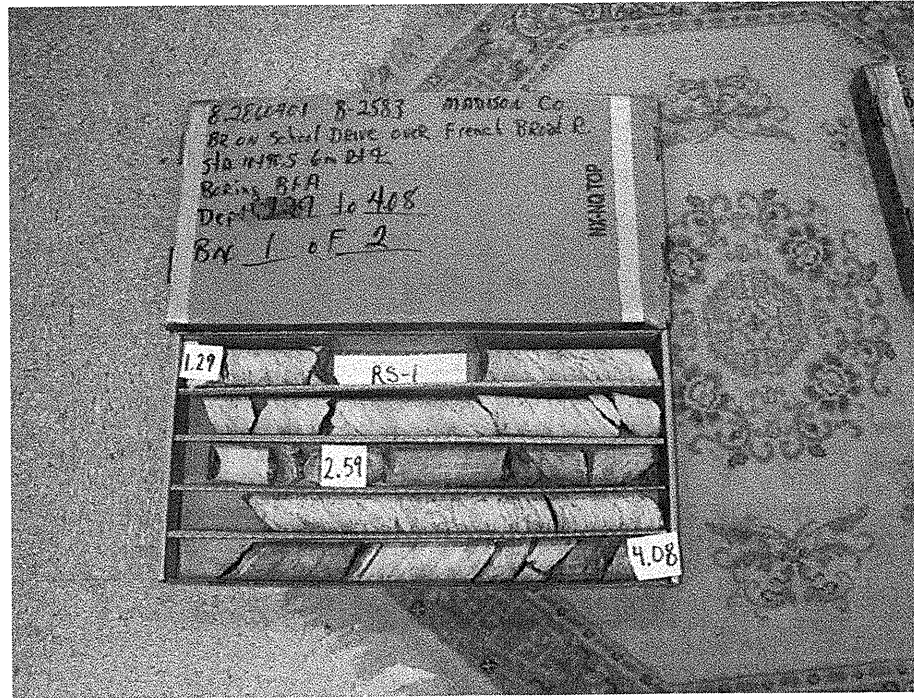 B-2583 MADISON Co
BR on School Drive over French Broad R.
Sta
Boring
Depth 1.29 to 4.08
Box 1 of 2
NX-NQ TOP
1.29
RS-1
2.59
4.08